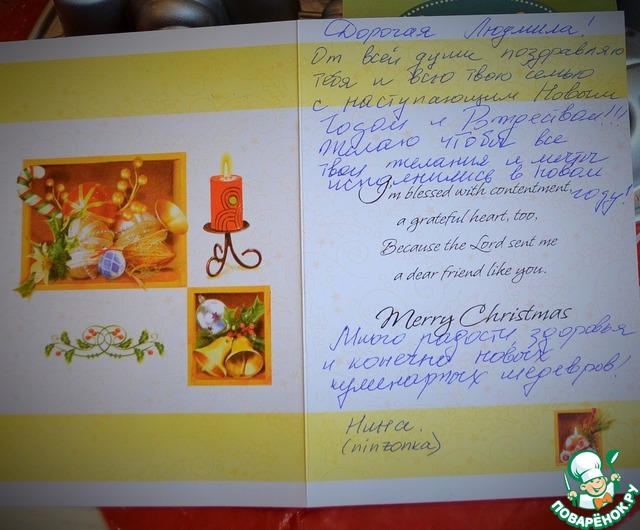 Дорогая Людмила!
От всей души поздравляю
тебя и всю твою семью
с наступающим Новым
Годом и Рождеством!!!
Желаю чтобы все
твои желания и мечты
исполнились в новом
году!
I'm blessed with contentment,
a grateful heart, too,
Because the Lord sent me
a dear friend like you.
Merry Christmas
Много радости здоровья
и конечно новых
кулинарных шедевров!
Нина.
(ninzonka)
ПОВАРЁНОК.РУ